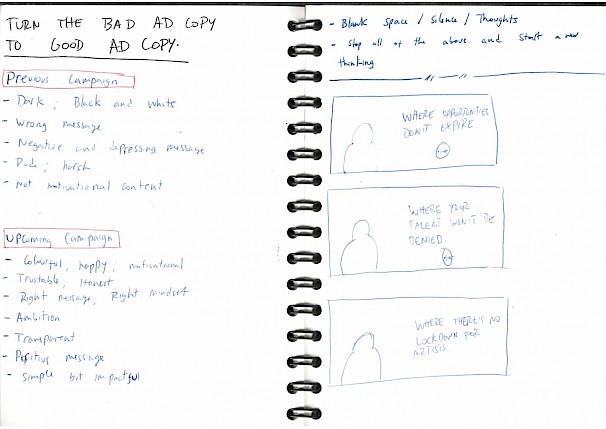 TURN THE BAD AD COPY
TO GOOD AD COPY.
Previous Campaign
- Dark ; Black and white
- Wrong message
- Negative and depressing message
- Rude ; harsh
- not motivational content
Upcoming Campaign
- Colourful, happy, motivational
- Trustable; Honest
- Right message, Right mindset
- Ambition
- Transparent
- Positive message
- Simple but impactful
- Blank Space / Silence / Thoughts
- Stop all of the above and start a new
thinking
WHERE OPPORTUNITIES
DON'T EXPIRE.
WHERE YOUR
TALENT WON'T BE
DENIED.
WHERE THERE'S NO
LOCKDOWN FOR
ARTISTS